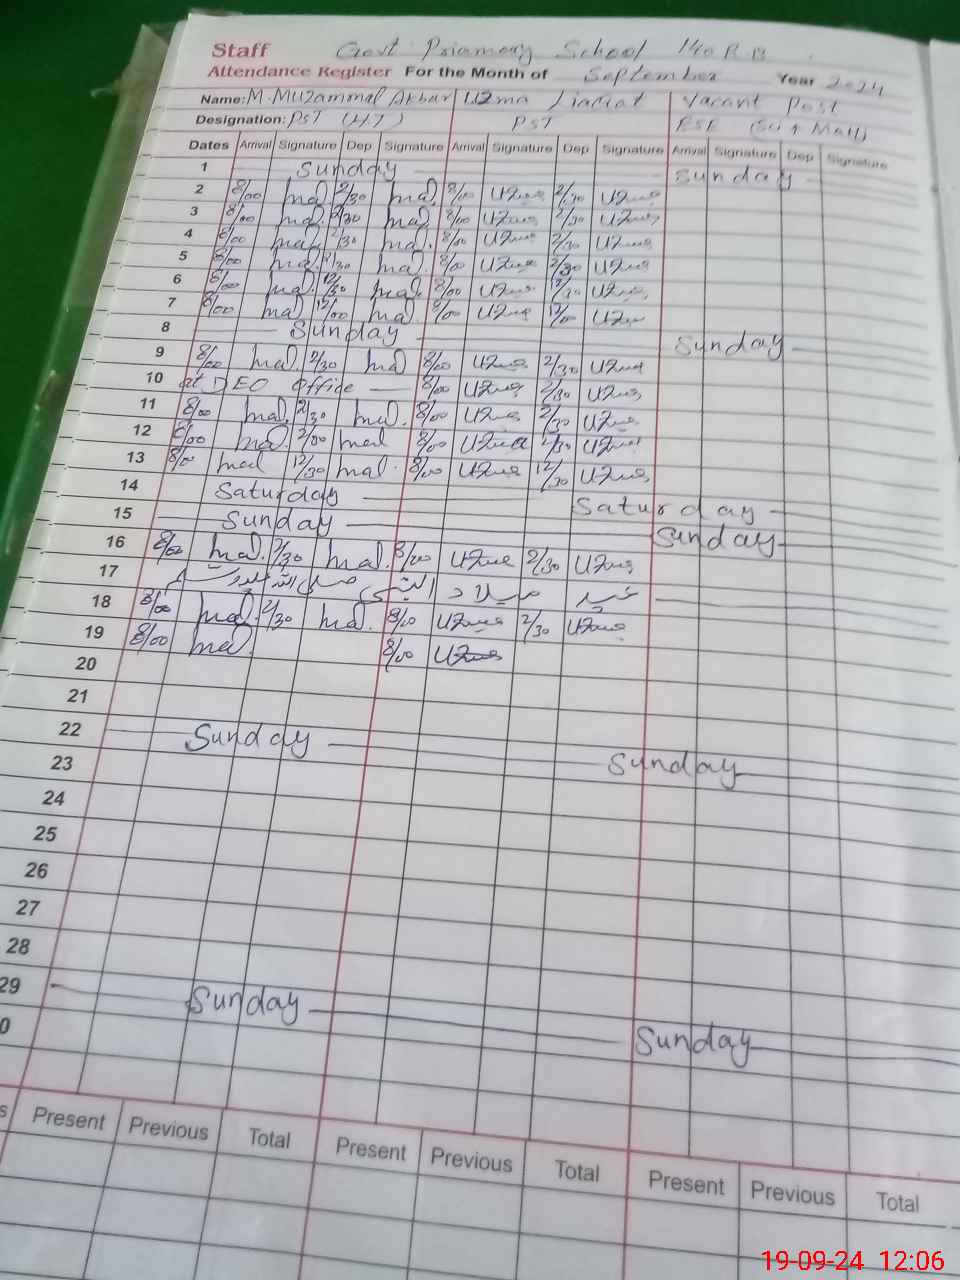 Staff Govt Priamary School 140 R.B
Attendance Register For the Month of September Year 2024
Name: M. Muzammal Akbar Uzma Liaqat Vacant Post
Designation: PST (H.T) PST ESE (Sci + Math)
Dates Arrival Signature Dep Signature Arrival Signature Dep Signature Arrival Signature Dep Signature
1 Sunday Sunday
2 8/00 mal. 2/30 mal. 8/00 2/30
3 8/00 mal. 2/30 mal. 8/00 2/30
4 8/00 mal. 2/30 mal. 8/00 2/30
5 8/00 mal. 2/30 mal. 8/00 2/30
6 8/00 mal. 12/30 mal. 8/00 12/30
7 8/00 mal 12/00 mal. 8/00 12/00
8 Sunday Sunday
9 8/00 mal. 2/30 mal 8/00 2/30
10 at DEO office 8/00 2/30
11 8/00 mal. 2/30 mal. 8/00 2/30
12 8/00 mal. mal 8/00 2/30
13 8/00 mal 12/30 mal. 8/00 12/30
14 Saturday Saturday
15 Sunday Sunday
16 8/00 mal. 2/30 mal. 8/00 2/30
17 عید میلاد النبی صلی اللہ علیہ وسلم
18 8/00 mal. 2/30 mal. 8/00 2/30
19 8/00 mal. 8/00
20
21
22 Sunday Sunday
23
24
25
26
27
28
29 Sunday Sunday
0
s Present Previous Total Present Previous Total Present Previous Total
19-09-24 12:06